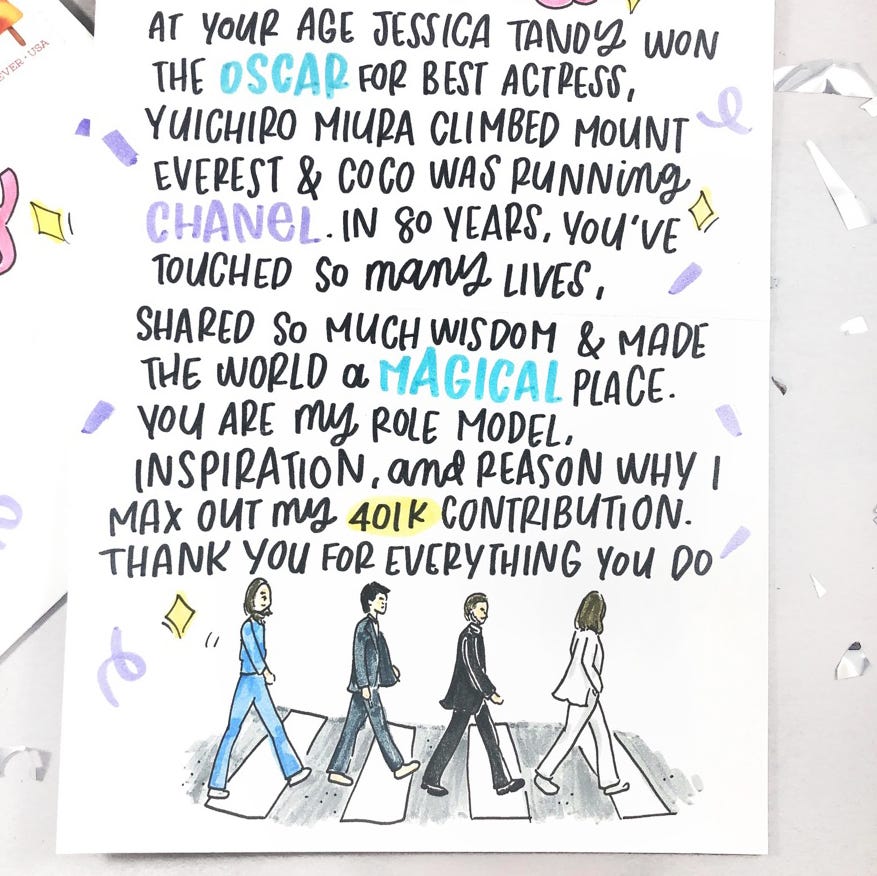 EVER • USA
AT YOUR AGE JESSICA TANDY WON
THE OSCAR FOR BEST ACTRESS,
YUICHIRO MIURA CLIMBED MOUNT
EVEREST & COCO WAS RUNNING
CHANEL. IN 80 YEARS, YOU'VE
TOUCHED SO many LIVES,
SHARED SO MUCH WISDOM & MADE
THE WORLD a MAGICAL PLACE.
YOU ARE my ROLE MODEL,
INSPIRATION, and REASON WHY I
MAX OUT my 401K CONTRIBUTION.
THANK YOU FOR EVERYTHING YOU DO